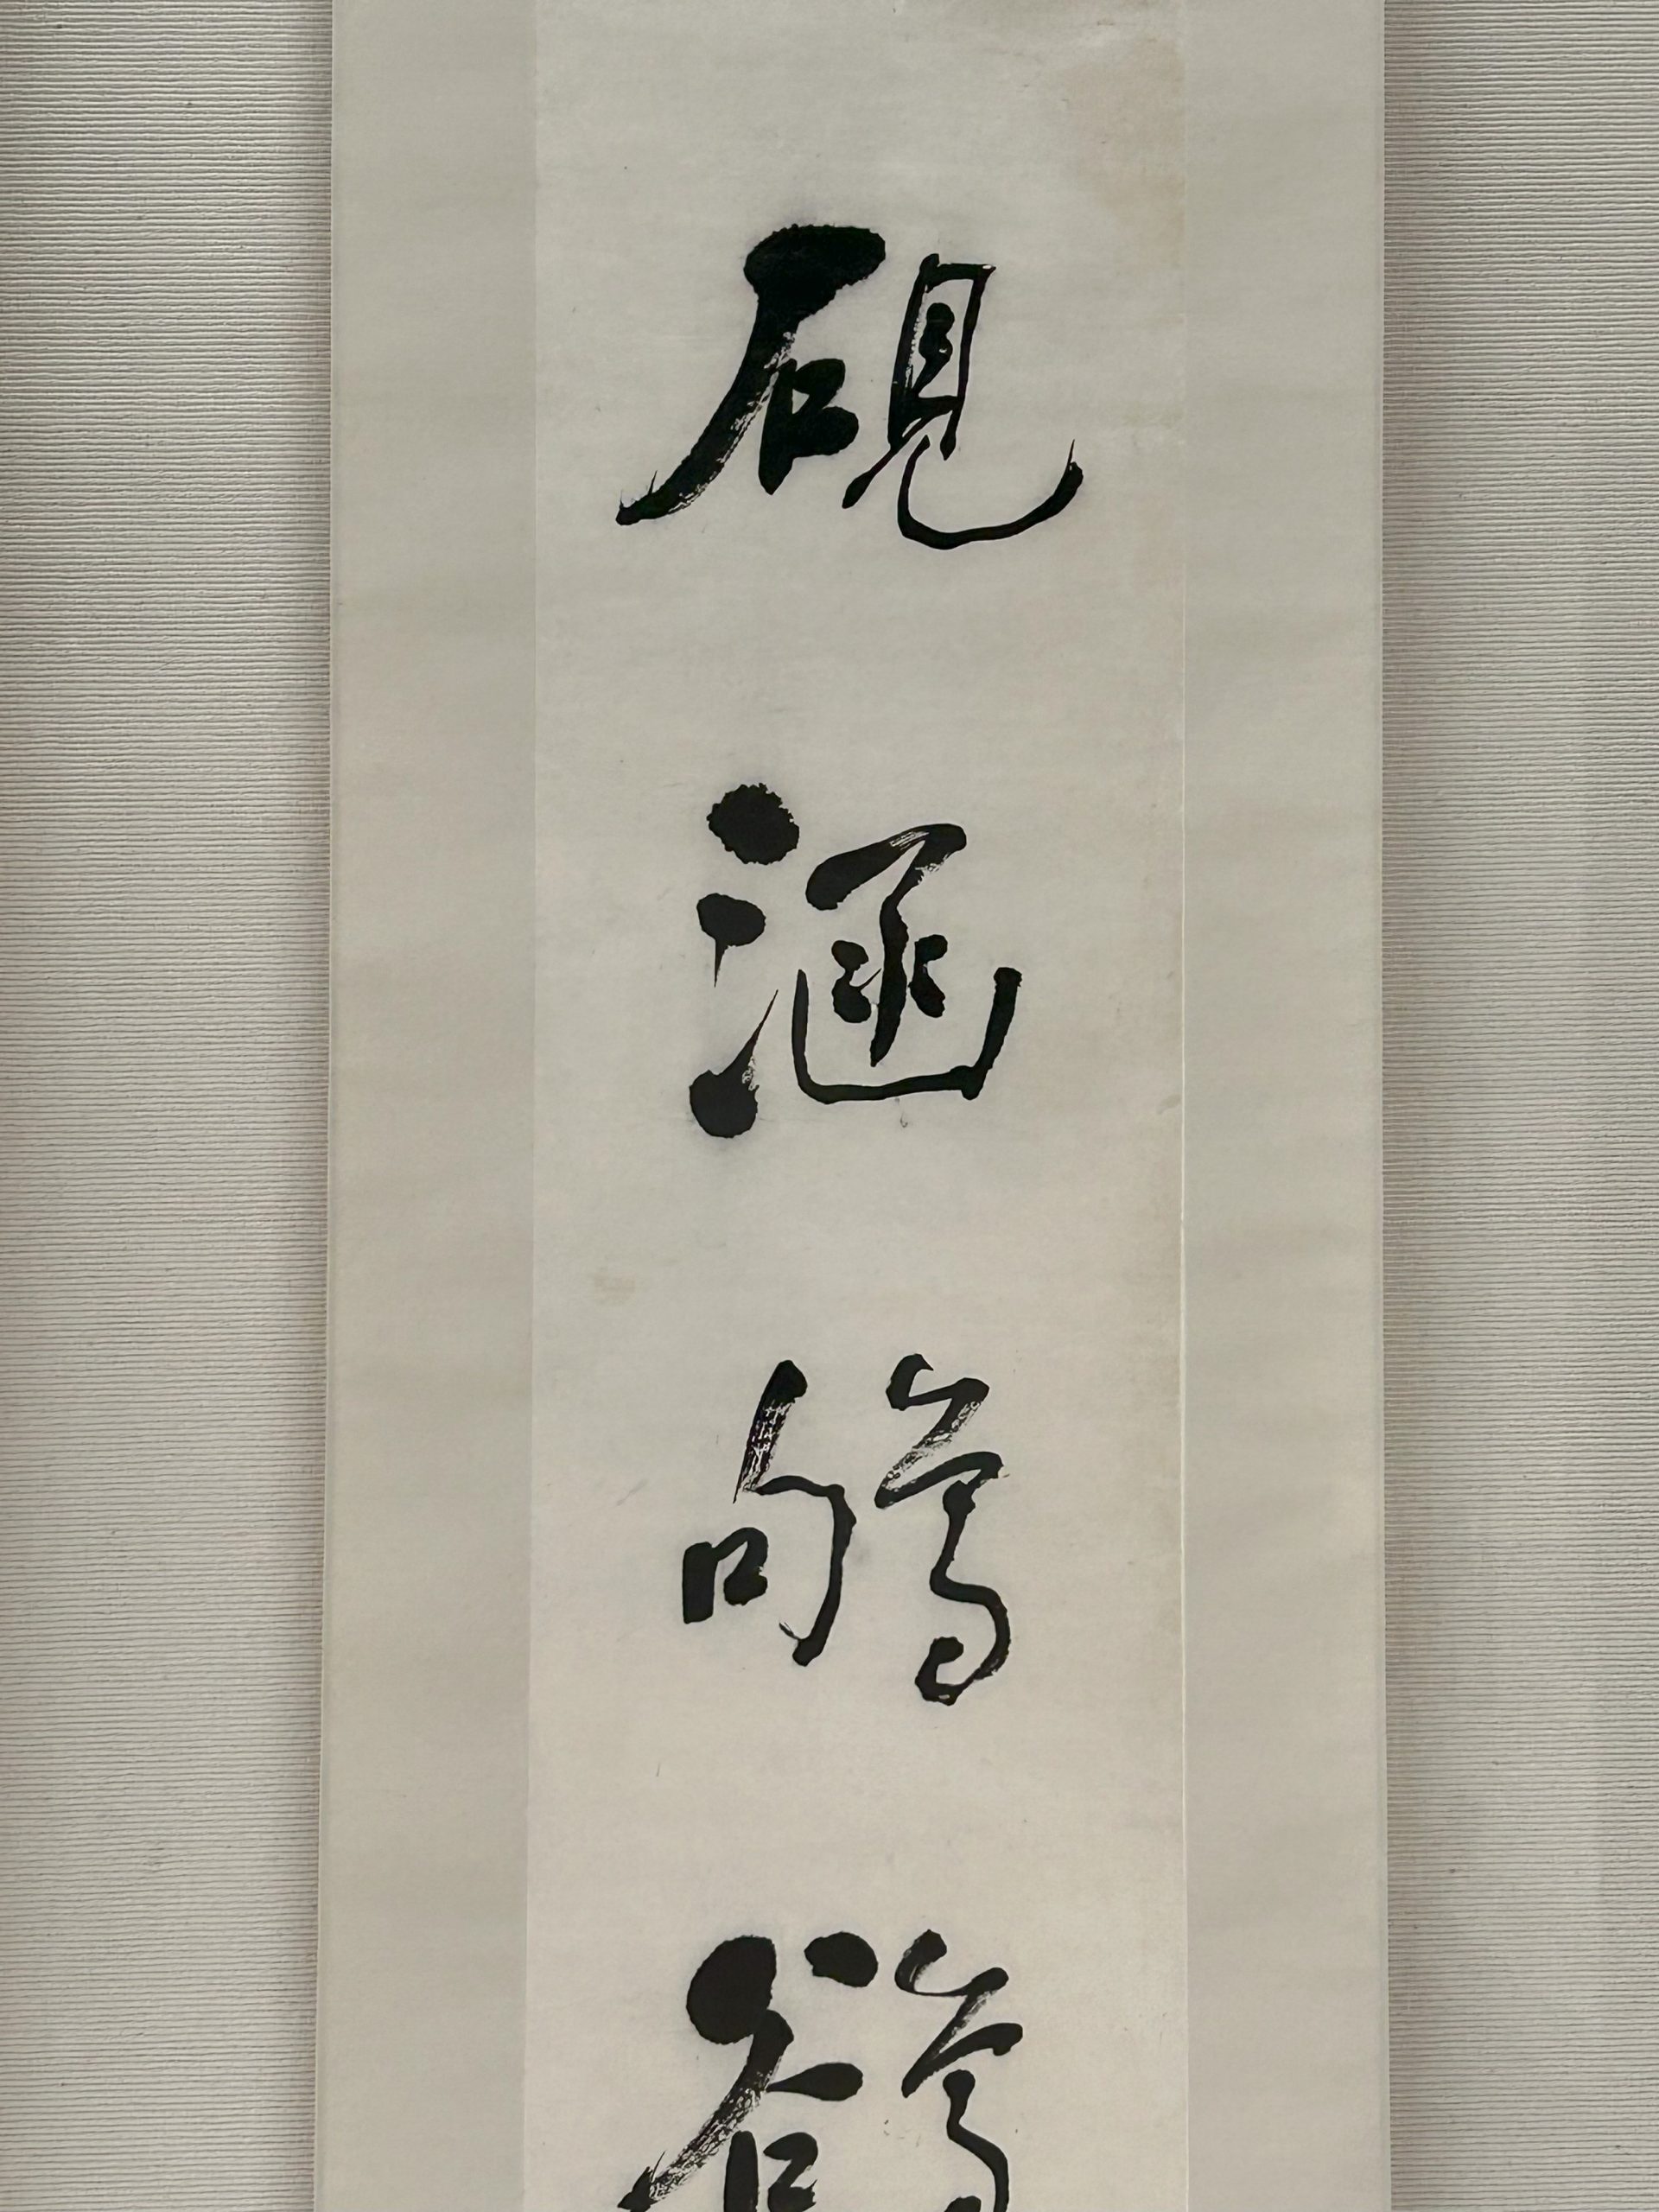 硯涵鴝鵒